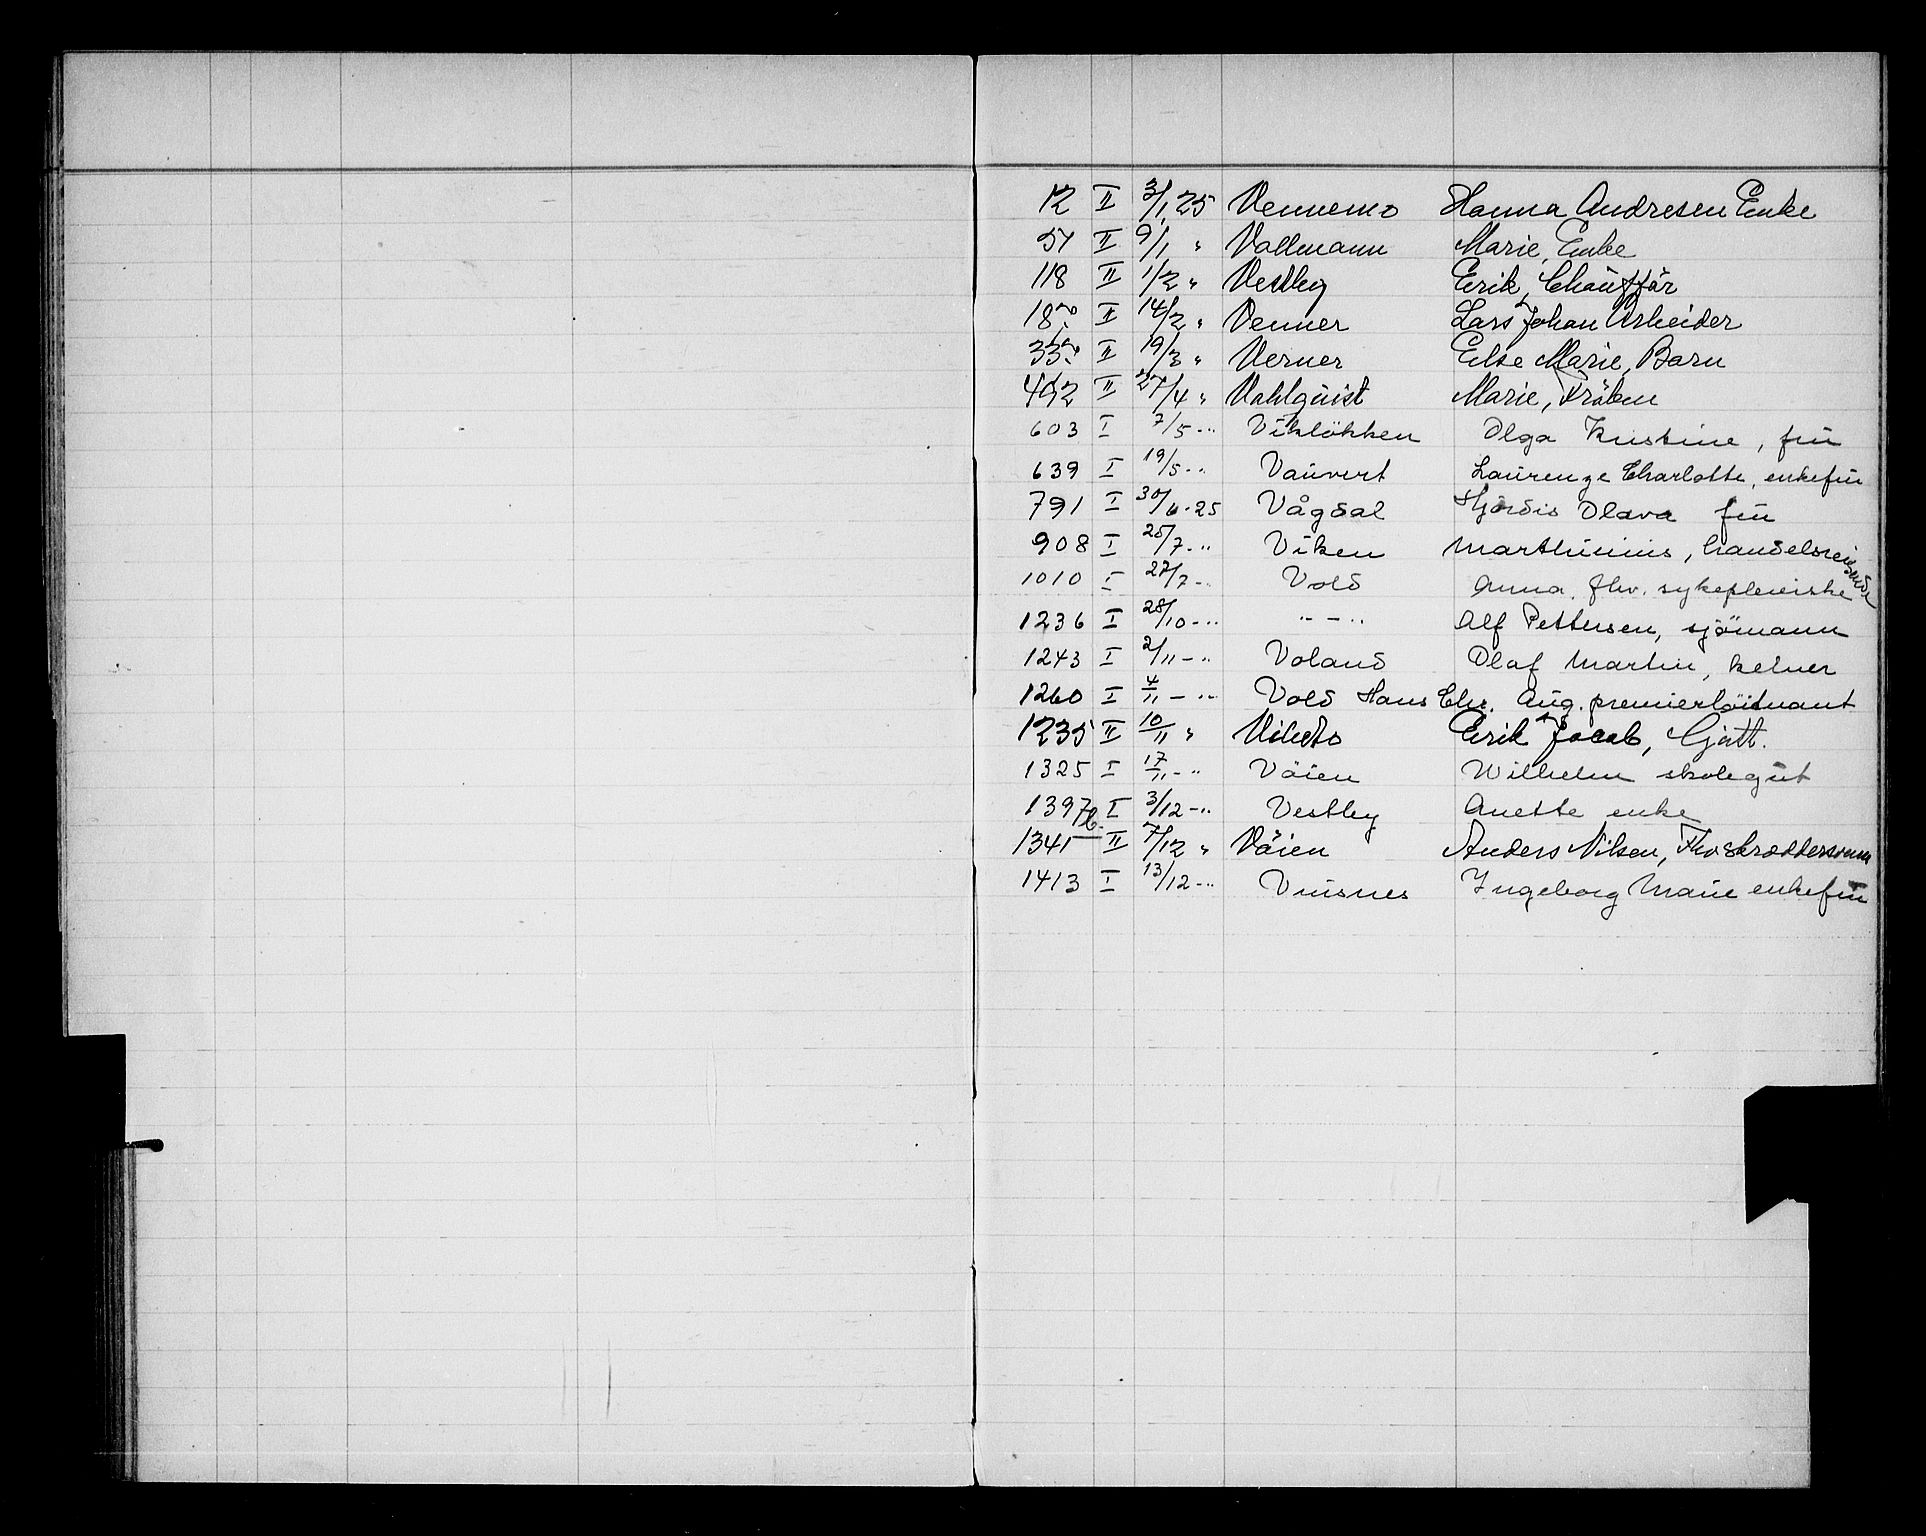 12 II 3/1 25 Vennemo Hanna Andresen Enke
57 II 9/1 " Vallmann Marie, Enke
118 II 1/2 " Vestby Erik, Chauffør
187 II 14/2 " Venner Lars Johan Arbeider
335 II 19/3 " Verner Else Marie, Barn
492 II 27/4 " Wahlquist Marie, Frøken
603 I 7/5 - " Vikløkken Olga Kristine, fru
639 I 19/5 - " Vauvert Laurenze Charlotte, enkefru
791 I 30/6 - 25 Vågdal Hjørdis Olava fru
908 I 25/7 - " Viken Marthinius, handelsreisende
1010 I 27/7 - " Vold Anna. fhv. sykepleierske
1236 I 28/10 - " " - " Alf Pettersen, sjømann
1243 I 2/11 - " Voland Olaf Martin, kelner
1260 I 4/11 - " Vold Hans Chr. Aug. premierløitnant
1235 II 10/11 " Erik Jacob, Gått.
1325 I 17/11 - " Vøien Wilhelm skolegut
1397 b. I 3/12 - " Vestby Anette enke
1341 II 7/12 " Vøien Anders Nilsen, Fhv Skræddersvenn
1413 I 13/12 - " Visnes Ingeborg Marie enkefru